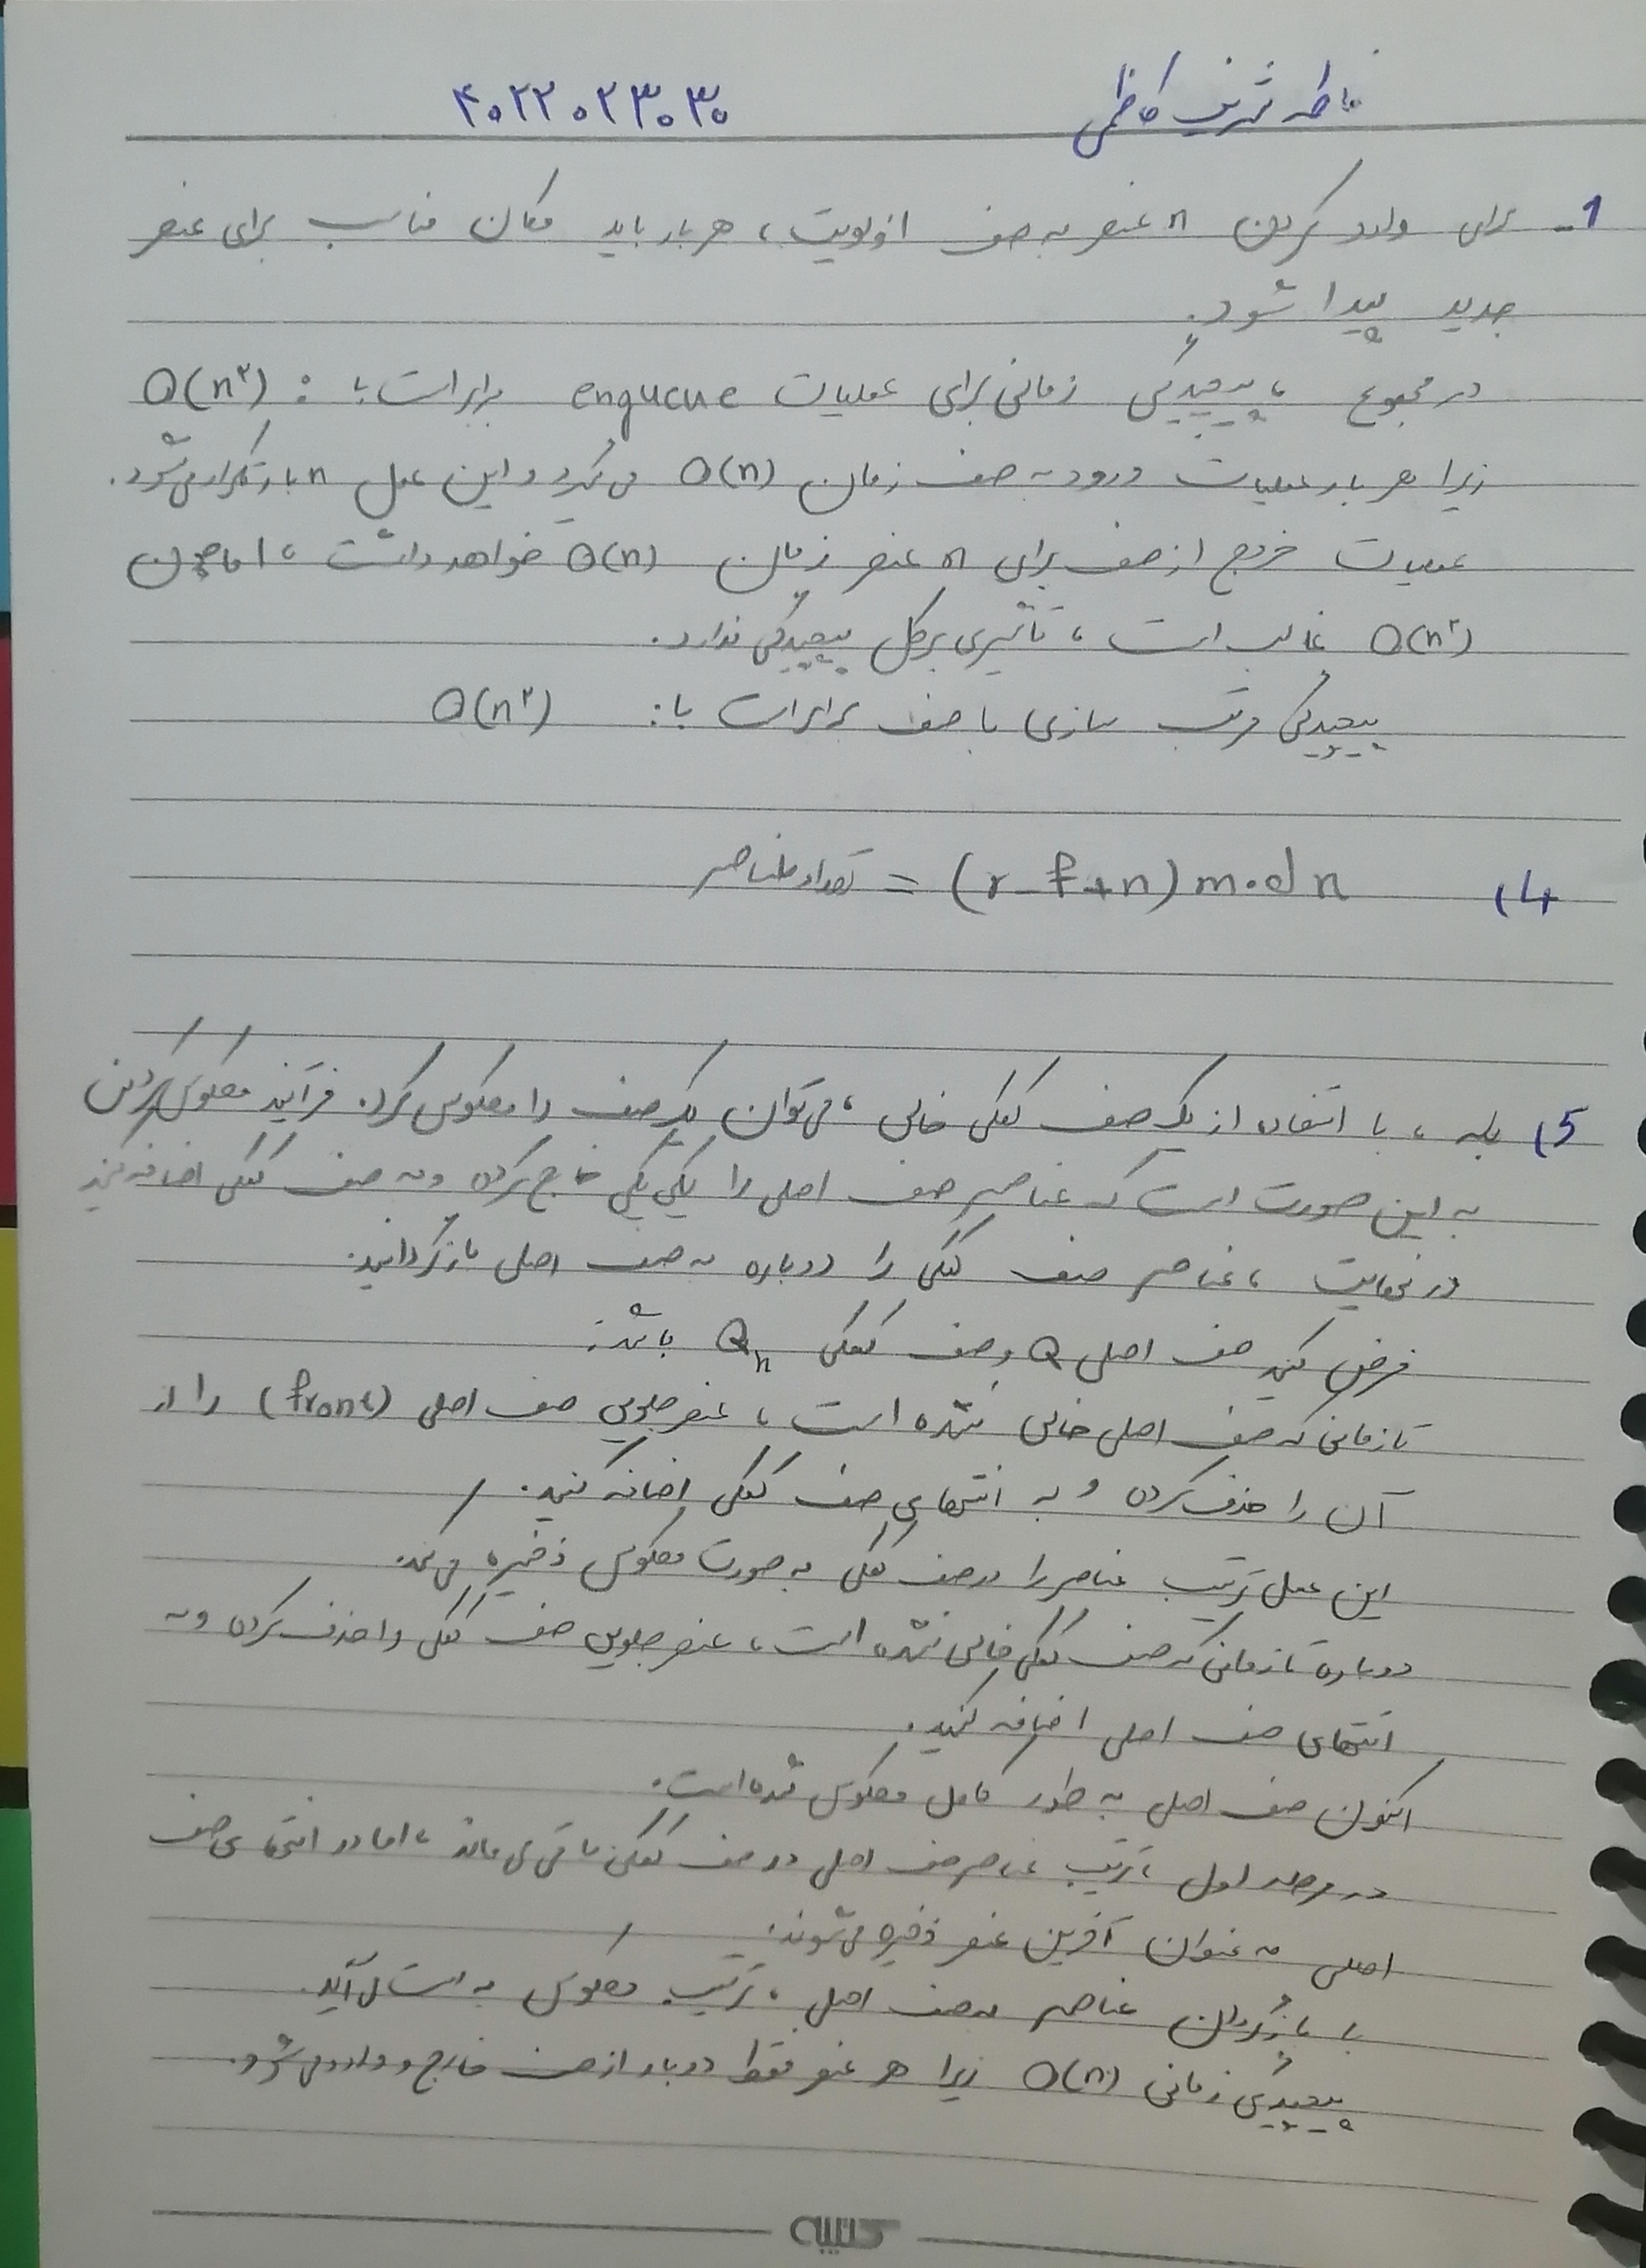 فاطمه شریف کاظمی ۴۰۲۲۰۲۳۰۳۰
1- برای وارد کردن n عنصر به صف اولویت، هر بار باید مکان مناسب برای عنصر
جدید پیدا شود.
در مجموع، پیچیدگی زمانی برای عملیات enqueue برابر است با: O(n²)
زیرا هر بار عملیات ورود به صف زمان O(n) می‌گیرد و این عمل n بار تکرار می‌شود.
عملیات خروج از صف برای n عنصر زمان O(n) خواهد داشت، اما چون
O(n²) غالب است، تأثیری بر کل پیچیدگی ندارد.
پیچیدگی مرتب سازی با صف برابر است با: O(n²)
4) تعداد عناصر = (r-f+n) mod n
5) بله، با استفاده از یک صف کمکی خالی، می‌توان یک صف را معکوس کرد. فرآیند معکوس کردن
به این صورت است که عناصر صف اصلی را یکی یکی خارج کرده و به صف کمکی اضافه کنید
در نهایت، عناصر صف کمکی را دوباره به صف اصلی بازگردانید.
فرض کنید صف اصلی Q و صف کمکی Qh باشد:
تا زمانی که صف اصلی خالی نشده است، عنصر جلویی صف اصلی (front) را از
آن را حذف کرده و به انتهای صف کمکی اضافه کنید.
این عمل ترتیب عناصر را در صف کمکی به صورت معکوس ذخیره می‌کند.
دوباره تا زمانی که صف کمکی خالی نشده است، عنصر جلویی صف کمکی را حذف کرده و به
انتهای صف اصلی اضافه کنید.
اکنون صف اصلی به طور کامل معکوس شده است.
در مرحله اول، ترتیب عناصر صف اصلی در صف کمکی باقی می‌ماند، اما در انتهای صف
اصلی به عنوان آخرین عنصر ذخیره می‌شوند.
با بازگرداندن عناصر به صف اصلی، ترتیب معکوس به دست می‌آید.
پیچیدگی زمانی O(n) زیرا هر عنصر فقط دو بار از صف خارج و وارد می‌شود.